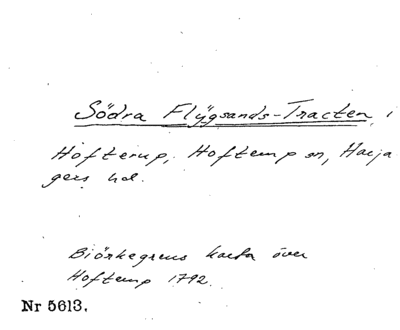 Södra Flÿgsands-Tracten i
Hofterup, Hofterup sn, Harja
gers hd.
Biörkegrens karta över
Hofterup 1792.
Nr 5613.